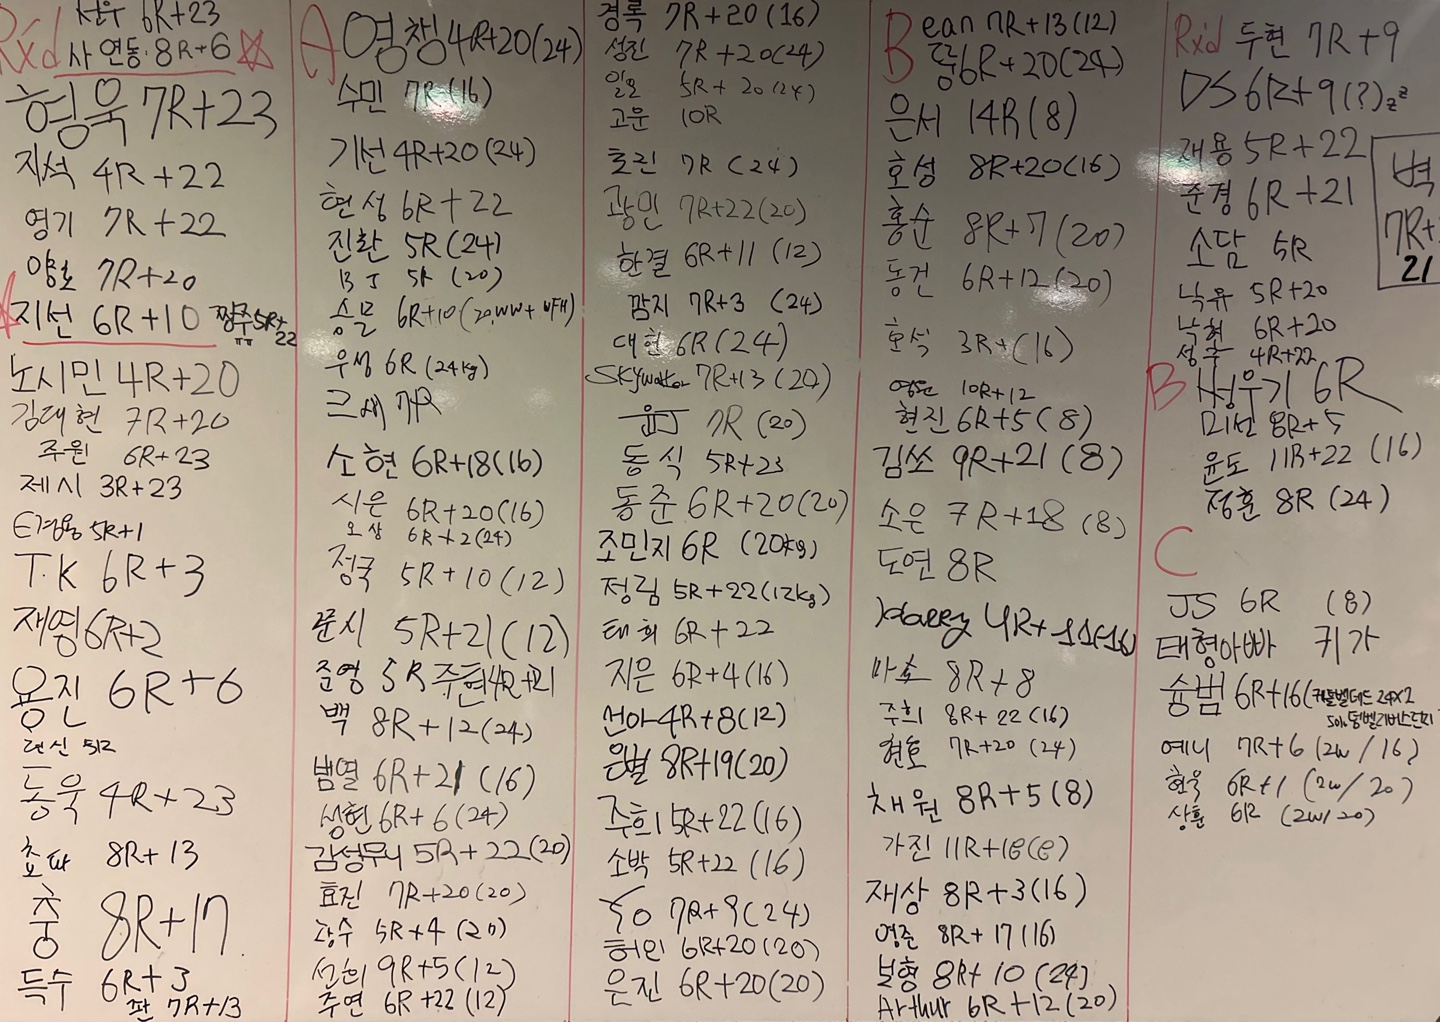 Rxd 선우 6R+23
사 연동·8R+6
형욱 7R+23
지석 4R+22
영기 7R+22
양호 7R+20
지선 6R+10 짱주 5R+22
ㅠㅠ
노시민 4R+20
김대현 7R+20
주원 6R+23
제시 3R+23
E경용 5R+1
T.K 6R+3
재영 6R+2
용진 6R+6
대신 5R
동욱 4R+23
쵸파 8R+13
충 8R+17
득수 6R+3
판 7R+13
A 영챙 4R+20(24)
수민 7R(16)
기선 4R+20(24)
현성 6R+22
진환 5R(24)
BJ 5R (20)
승물 6R+10(20,WW+
우성 6R (24kg)
그새 7R
소현 6R+18(16)
시은 6R+20(16)
오상 6R+2(24)
정국 5R+10(12)
준시 5R+21(12)
준영 5R 주현 4R+21
백 8R+12(24)
범열 6R+21 (16)
성현 6R+6(24)
김성무니 5R+22(20)
효진 7R+20(20)
광수 5R+4 (20)
선희 9R+5(12)
주연 6R+22(12)
경록 7R+20(16)
성진 7R+20(24)
일오 5R+20(24)
고운 10R
효린 7R (24)
광민 7R+22(20)
한결 6R+11(12)
깜지 7R+3 (24)
대현 6R(24)
Skywalker 7R+13(20)
윤J 7R (20)
동식 5R+23
동준 6R+20(20)
조민지 6R (20kg)
정림 5R+22(12kg)
태희 6R+22
지은 6R+4(16)
선아 4R+8(12)
은별 8R+19(20)
주희 5R+22(16)
소박 5R+22 (16)
YO 7R+9(24)
허인 6R+20(20)
은진 6R+20(20)
B ean 7R+13(12)
뚱 6R+20(24)
은서 14R(8)
호성 8R+20(16)
홍순 8R+7(20)
동건 6R+12(20)
호석 3R+(16)
영민 10R+12
현진 6R+5(8)
김쏘 9R+21(8)
소은 7R+18(8)
도연 8R
Harry 4R+11(16)
마초 8R+8
주희 8R+22(16)
현호 7R+20 (24)
채원 8R+5(8)
가진 11R+18(8)
재상 8R+3(16)
영준 8R+17(16)
보형 8R+10(24)
Arthur 6R+12(20)
Rxd 두현 7R+9
DS 6R+9(?)zzz
재용 5R+22
준경 6R+21
소담 5R
낙유 5R+20
낙현 6R+20
성주 4R+22
벽
7R+
21
B 성우기 6R
미선 8R+5
윤도 11R+22 (16)
정훈 8R (24)
C
JS 6R (8)
태형아빠 귀가
슝범 6R+16(케틀벨데드 24x2
50lb 덤벨리버스런지
예니 7R+6 (2W/16)
현욱 6R+1 (2W/20)
상훈 6R (2W/20)